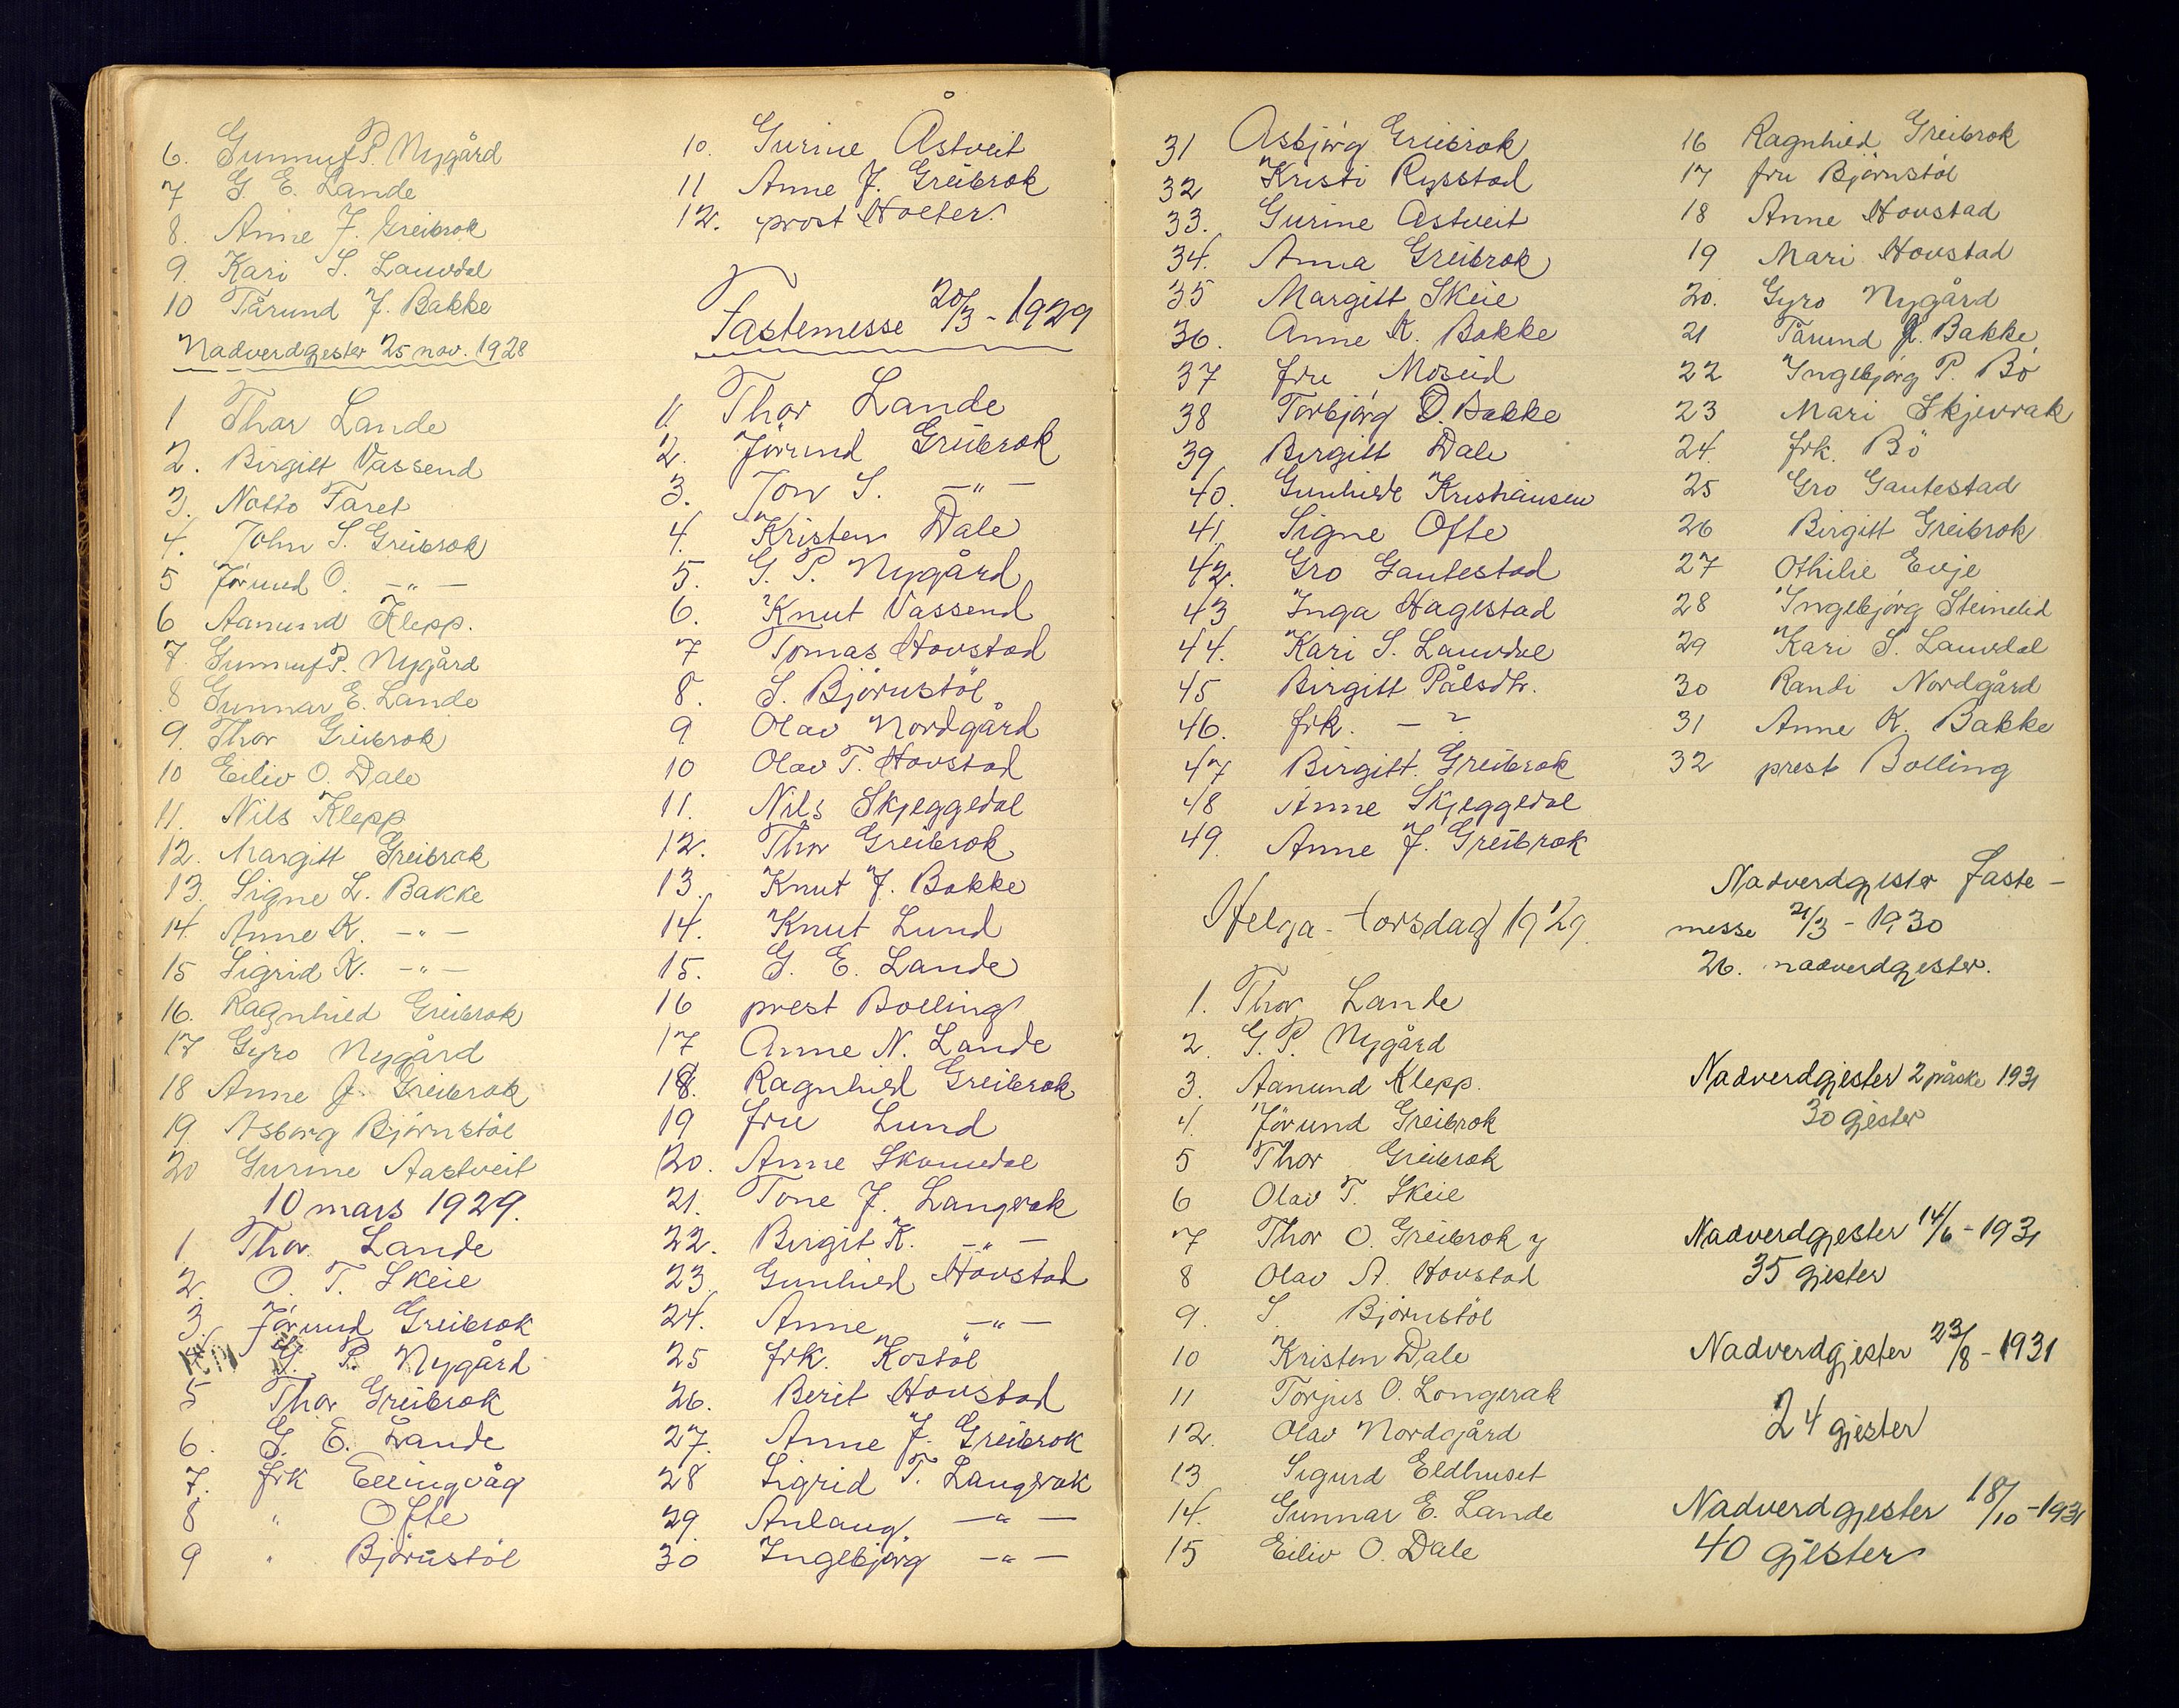 6. Gunnuf P. Nygård
7 G. E. Lande
8. Anne J. Greibrok
9. Kari S. Lauvdal
10 Tårund J. Bakke
Nadverdgjester 25 nov. 1928
1 Thor Lande
2. Birgitt Vassend
3. Notto Taret
4. John S. Greibrok
5 Jörund O. -"-
6 Aanund Klepp.
7. Gunnuf P. Nygård
8 Gunnar E. Lande
9. Thor Greibrok
10 Eiliv O. Dale
11. Nils Klepp
12. Margitt Greibrok
13. Signe L. Bakke
14. Anne K. -"-
15 Sigrid K. -"-
16. Ragnhild Greibrok
17 Gyro Nygård
18 Anne J. Greibrok
19. Asborg Björnstöl
20 Gurine Aastveit
10 mars 1929.
1. Thor Lande
2. O. T. Skeie
3. Jörund Greibrok
4. G. P. Nygård
5 Thor Greibrok
6. G. E. Lande
7. frk Ellingvåg
8 " Ofte
9 " Björnstöl
10. Gurine Åstveit
11 Anne J. Greibrok
12. prost Holter.
Fastemesse 20/3 - 1929
1. Thor Lande
2. Jörund Greibrok
3. Jon S. -"-
4. Kristen Dale
5. G. P. Nygård
6. Knut Vassend
7 Tomas Hovstad
8. S. Björnstöl
9 Olav Nordgård
10 Olav T. Hovstad
11. Nils Skjeggedal
12. Thor Greibrok
13. Knut J. Bakke
14. Knut Lund
15. G. E. Lande
16 prest Bolling
17 Anne N. Lande
18. Ragnhild Greibrok
19 fru Lund
20. Anne Skomedal
21. Tone J. Langerak
22. Birgit K. -"-
23. Gunhild Hovstad
24. Anne -"-
25 frk. Kostöl
26. Berit Hovstad
27. Anne J. Greibrok
28 Sigrid T. Langerak
29 Anlaug. -"-
30 Ingebjörg -"-
31 Asbjörg Greibrok
32 Kristi Rysstad
33. Gurine Åstveit
34. Anna Greibrok
35 Margitt Skeie
36. Anne K. Bakke
37 fru Moseid
38 Torbjörg D. Bakke
39 Birgitt Dale
40. Gunhild Kristiansen
41. Signe Ofte
42. Gro Gautestad
43 Inga Hagestad
44. Kari S. Lauvdal
45 Birgitt Pålsdtr.
46. frk. - ?
47 Birgitt Greibrok
48 Anne Skjeggedal
49. Anne J. Greibrok
Helga-torsdag 1929.
1. Thor Lande
2. G. P. Nygård
3. Aanund Klepp.
4. Jörund Greibrok
5 Thor Greibrok
6 Olav T. Skeie
7 Thor O. Greibrok y
8 Olav A. Hovstad
9. S. Björnstöl
10 Kristen Dale
11 Torjus O. Longerak
12. Olav Nordgård
13 Sigurd Eldhuset
14. Gunnar E. Lande
15 Eiliv O. Dale
16 Ragnhild Greibrok
17 fru Björnstöl
18 Anne Hovstad
19 Mari Hovstad
20. Gyro Nygård
21 Tårund J. Bakke
22 Ingebjörg P. Bö
23 Mari Skjevrak
24. frk. Bö
25 Gro Gautestad
26 Birgitt Greibrok
27 Othilie Evje
28 Ingebjörg Steinelid
29 Kari S. Lauvdal
30 Randi Nordgård
31 Anne K. Bakke
32 prest Bolling
Nadverdgjester Faste-
messe 21/3 - 1930
26. nadverdgjester.
Nadverdgjester 2 påske 1931
30 gjester
Nadverdgjester 14/6 - 1931
35 gjester
Nadverdgjester 23/8 - 1931
24 gjester
Nadverdgjester 18/10 - 1931
40 gjester